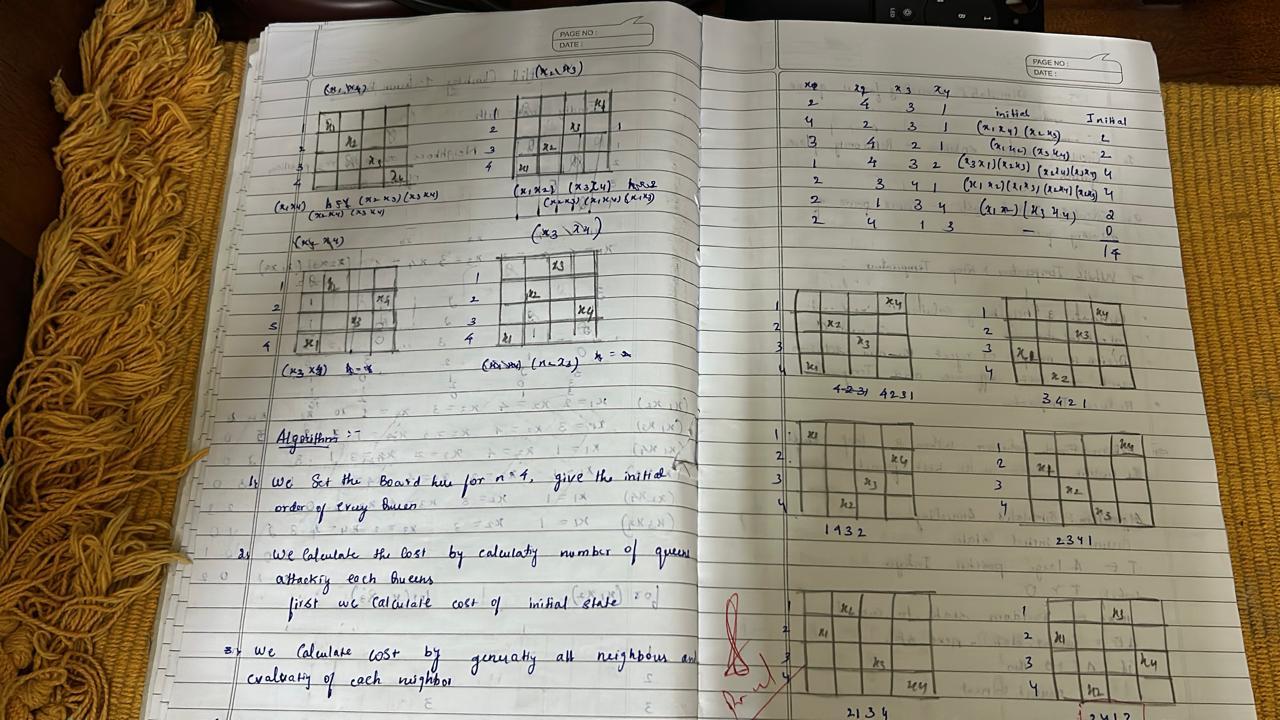 PAGE NO :
DATE :
(x1 \ x4)
(x2 \ x3)
1
2
3
4
x1
x2
x3
x4
1
2
3
4
x4
x3
x2
x1
(x1x4)
(x2x3) (x3x4)
(x2x4) (x3x4)
(x1x2) (x3x4)
(x2x3) (x1x4) (x1x3)
(x3 \ x4)
1
2
3
4
x2
x4
x3
x1
1
2
3
4
x3
x2
x4
x1
(x3 x4)
Algorithm :-
1. We Set the Board here for n*4, give the initial
order of every Queen
2. We Calculate the Cost by calculatiy number of queens
attackiy each Queens
first we Calculate cost of initial state
3. We Calculate cost by generatiy all neighbours an
evaluatiy of each neighbor
PAGE NO :
DATE :
x1 x2 x3 x4
2 4 3 1 initial Initial
4 2 3 1 (x1x4) (x2x3) 2
3 4 2 1 (x1x2) (x3x4) 2
1 4 3 2 (x3x1) (x2x3) (x2x4) (x3x4) 4
2 3 4 1 (x1x2) (x1x3) (x2x4) (x2x3) 4
2 1 3 4 (x1x2) (x3x4) 2
2 4 1 3 — 0
14
1
2
3
4
x4
x2
x3
x1
1
2
3
4
x4
x3
x1
x2
4-2-31 4231
3421
1
2
3
4
x1
x4
x3
x2
1
2
3
4
x4
x1
x2
x3
1432
2341
1
2
3
4
x2
x1
x3
x4
1
2
3
4
x3
x1
x4
x2
2134
2413